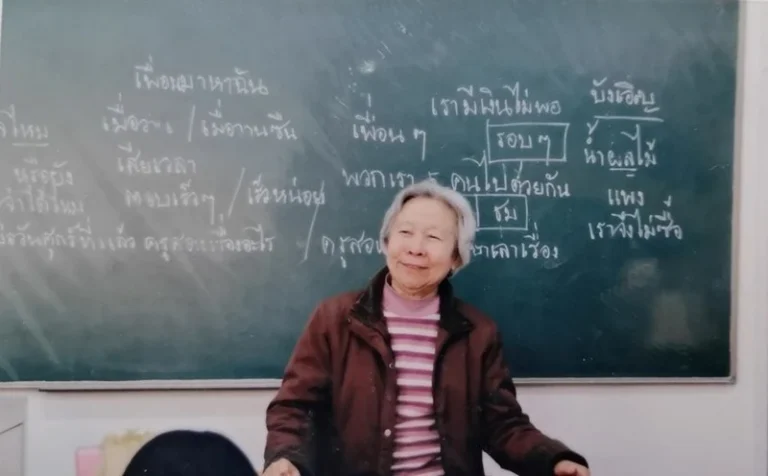 เพื่อนมาหาฉัน
เมื่อวาน / เมื่อวานซืน
ไหม
หรือยัง
จำได้ไหม
เสียเวลา
ตอบเร็วๆ / เร็วหน่อย
วันศุกร์ที่แล้ว ครูสอนเรื่องอะไร / ครูสอน
เพื่อน ๆ
พวกเรา 5 คนไปด้วยกัน
เรามีเงินไม่พอ
รอบๆ
ชม
เล่าเรื่อง
บังเอิญ
น้ำผลไม้
แพง
เราจึงไม่ซื้อ